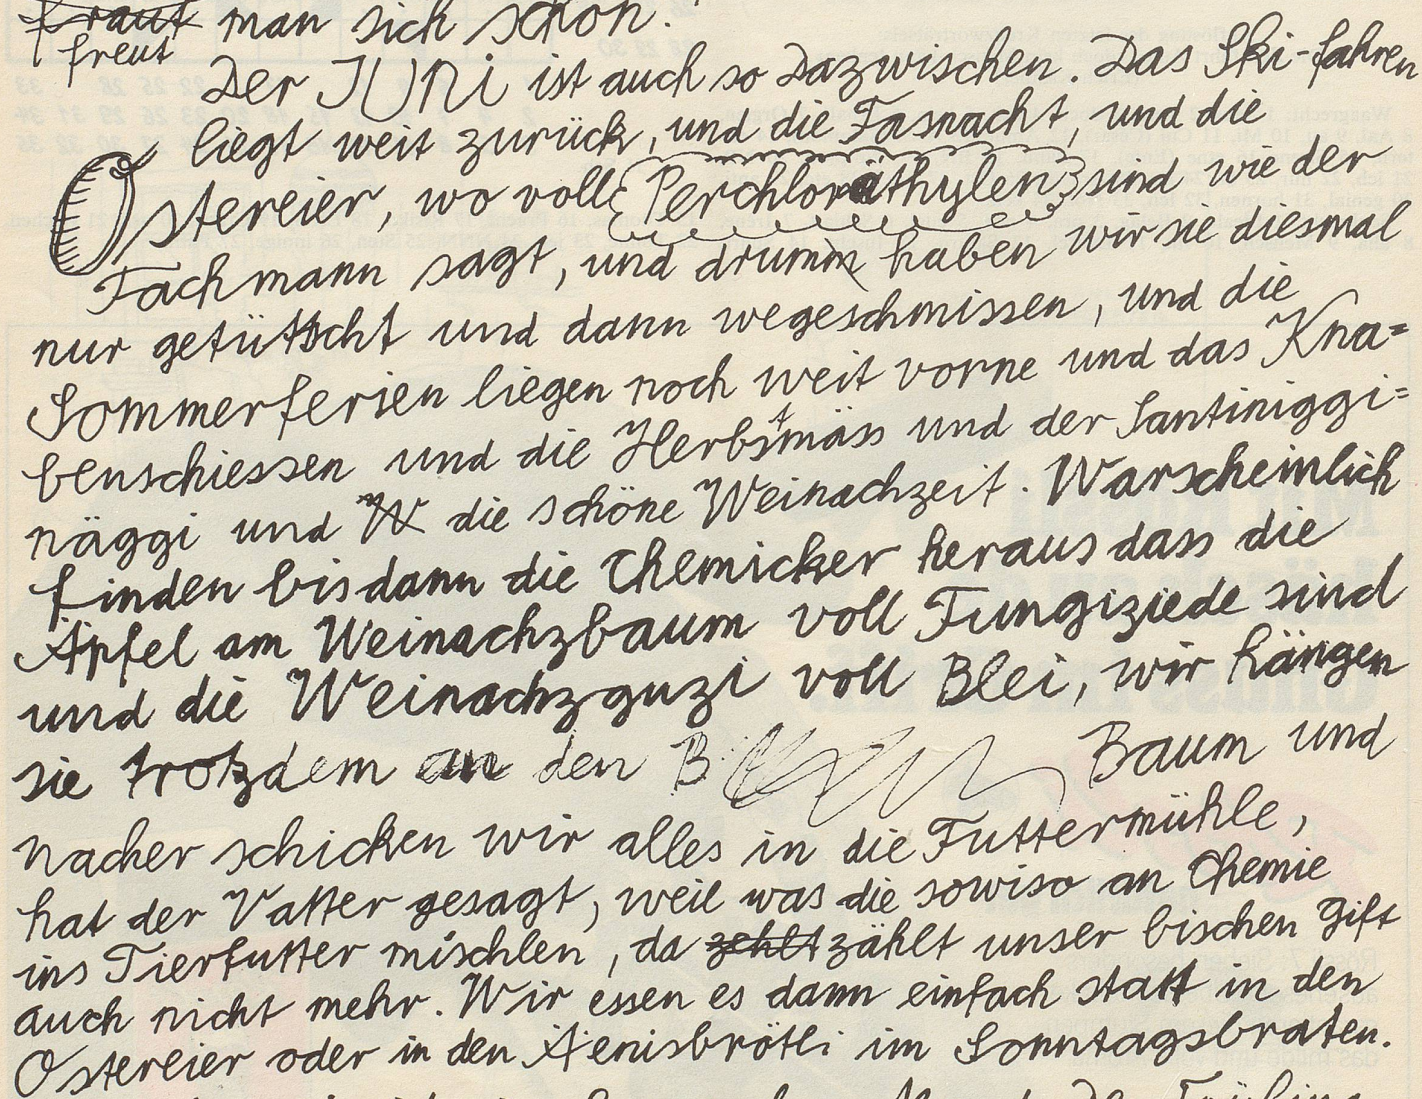 man sich schon.
freut
Der JUNi ist auch so Dazwischen. Das Ski-fahren
liegt weit zurück, und die Fasnacht, und die
Ostereier, wo voll Perchloräthylen sind wie der
Fachmann sagt, und drumm haben wir sie diesmal
nur getütscht und dann wegeschmissen, und die
Sommerferien liegen noch weit vorne und das Kna=
benschiessen und die Herbstmäss und der Santiniggi=
näggi und W die schöne Weinachzeit. Warscheinlich
finden bis dann die Chemicker heraus dass die
Äpfel am Weinachzbaum voll Fungiziede sind
und die Weinachzguzi voll Blei, wir hängen
sie trotzdem an den B Baum und
nacher schicken wir alles in die Futtermühle,
hat der Vatter gesagt, weil was die sowiso an Chemie
ins Tierfutter mischlen, da zehlt zählt unser bischen Gift
auch nicht mehr. Wir essen es dann einfach statt in den
Ostereier oder in den Äenisbrötli im Sonntagsbraten.